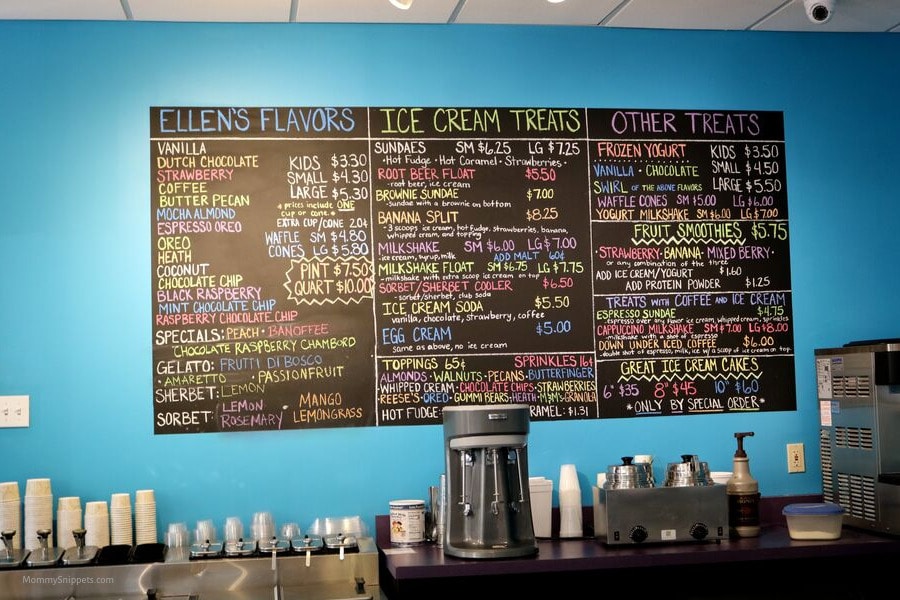 ELLEN'S FLAVORS
VANILLA
DUTCH CHOCOLATE
STRAWBERRY
COFFEE
BUTTER PECAN
MOCHA ALMOND
ESPRESSO OREO
OREO
HEATH
COCONUT
CHOCOLATE CHIP
BLACK RASPBERRY
MINT CHOCOLATE CHIP
RASPBERRY CHOCOLATE CHIP
KIDS $3.30
SMALL $4.30
LARGE $5.30
* prices include ONE
cup or cone *
EXTRA CUP/CONE 20¢
WAFFLE SM $4.80
CONES LG $5.80
PINT $7.50
QUART $10.00
SPECIALS: PEACH · BANOFFEE
CHOCOLATE RASPBERRY CHAMBORD
GELATO: FRUTTI DI BOSCO
· AMARETTO · PASSIONFRUIT
SHERBET: LEMON
SORBET: LEMON ROSEMARY MANGO LEMONGRASS
ICE CREAM TREATS
SUNDAES SM $6.25 LG $7.25
· Hot Fudge · Hot Caramel · Strawberries ·
ROOT BEER FLOAT $5.50
-root beer, ice cream
BROWNIE SUNDAE $7.00
-sundae with a brownie on bottom
BANANA SPLIT $8.25
-3 scoops ice cream, hot fudge, strawberries, banana,
whipped cream, and topping
MILKSHAKE SM $6.00 LG $7.00
-ice cream, syrup, milk ADD MALT 60¢
MILKSHAKE FLOAT SM $6.75 LG $7.75
-milkshake with extra scoop ice cream on top
SORBET/SHERBET COOLER $6.50
-sorbet/sherbet, club soda
ICE CREAM SODA $5.50
vanilla, chocolate, strawberry, coffee
EGG CREAM $5.00
same as above, no ice cream
TOPPINGS 65¢ SPRINKLES 16¢
ALMONDS · WALNUTS · PECANS · BUTTERFINGER
· WHIPPED CREAM · CHOCOLATE CHIPS · STRAWBERRIES
· REESE'S · OREO · GUMMI BEARS · HEATH · M&M's · GRANOLA
HOT FUDGE RAMEL: $1.31
OTHER TREATS
FROZEN YOGURT KIDS $3.50
VANILLA · CHOCOLATE SMALL $4.50
SWIRL OF THE ABOVE FLAVORS LARGE $5.50
WAFFLE CONES SM $5.00 LG $6.00
YOGURT MILKSHAKE SM $6.00 LG $7.00
FRUIT SMOOTHIES $5.75
· STRAWBERRY · BANANA · MIXED BERRY ·
or any combination of the three
ADD ICE CREAM/YOGURT $1.60
ADD PROTEIN POWDER $1.25
TREATS WITH COFFEE AND ICE CREAM
ESPRESSO SUNDAE $4.75
-espresso over any flavor ice cream, whipped cream, sprinkles
CAPPUCCINO MILKSHAKE SM $7.00 LG $8.00
-milkshake with a shot of espresso
DOWN UNDER ICED COFFEE $6.00
-double shot of espresso, milk, ice w/ a scoop of ice cream on top
GREAT ICE CREAM CAKES
6" $35 8" $45 10" $60
*ONLY BY SPECIAL ORDER*
MommySnippets.com